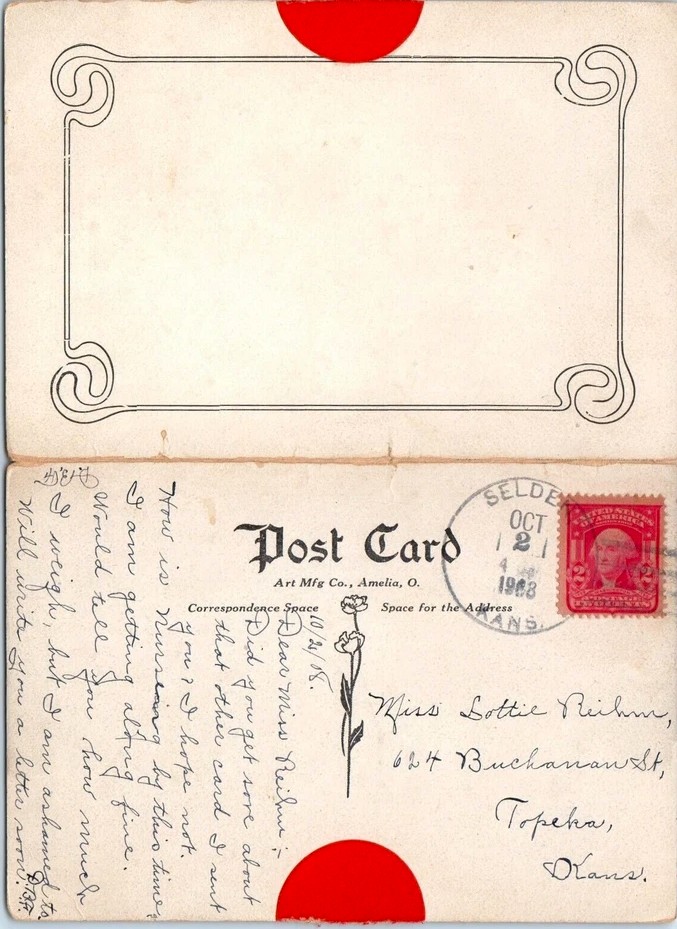 Post Card
Art Mfg Co., Amelia, O.
Correspondence Space
Space for the Address
SELDEN
OCT
2
4
1908
KANS.
UNITED STATES
OF AMERICA
2 2
POSTAGE
TWO CENTS
Miss Lottie Reihm,
624 Buchanan St,
Topeka,
Kans.
10/2/08.
Dear Miss Reihm:-
Did you get sore about
that other card I sent
you? I hope not.
How is nursing by this time?
I am getting along fine.
Would tell you how much
I weigh, but I am ashamed to.
Will write you a letter soon.